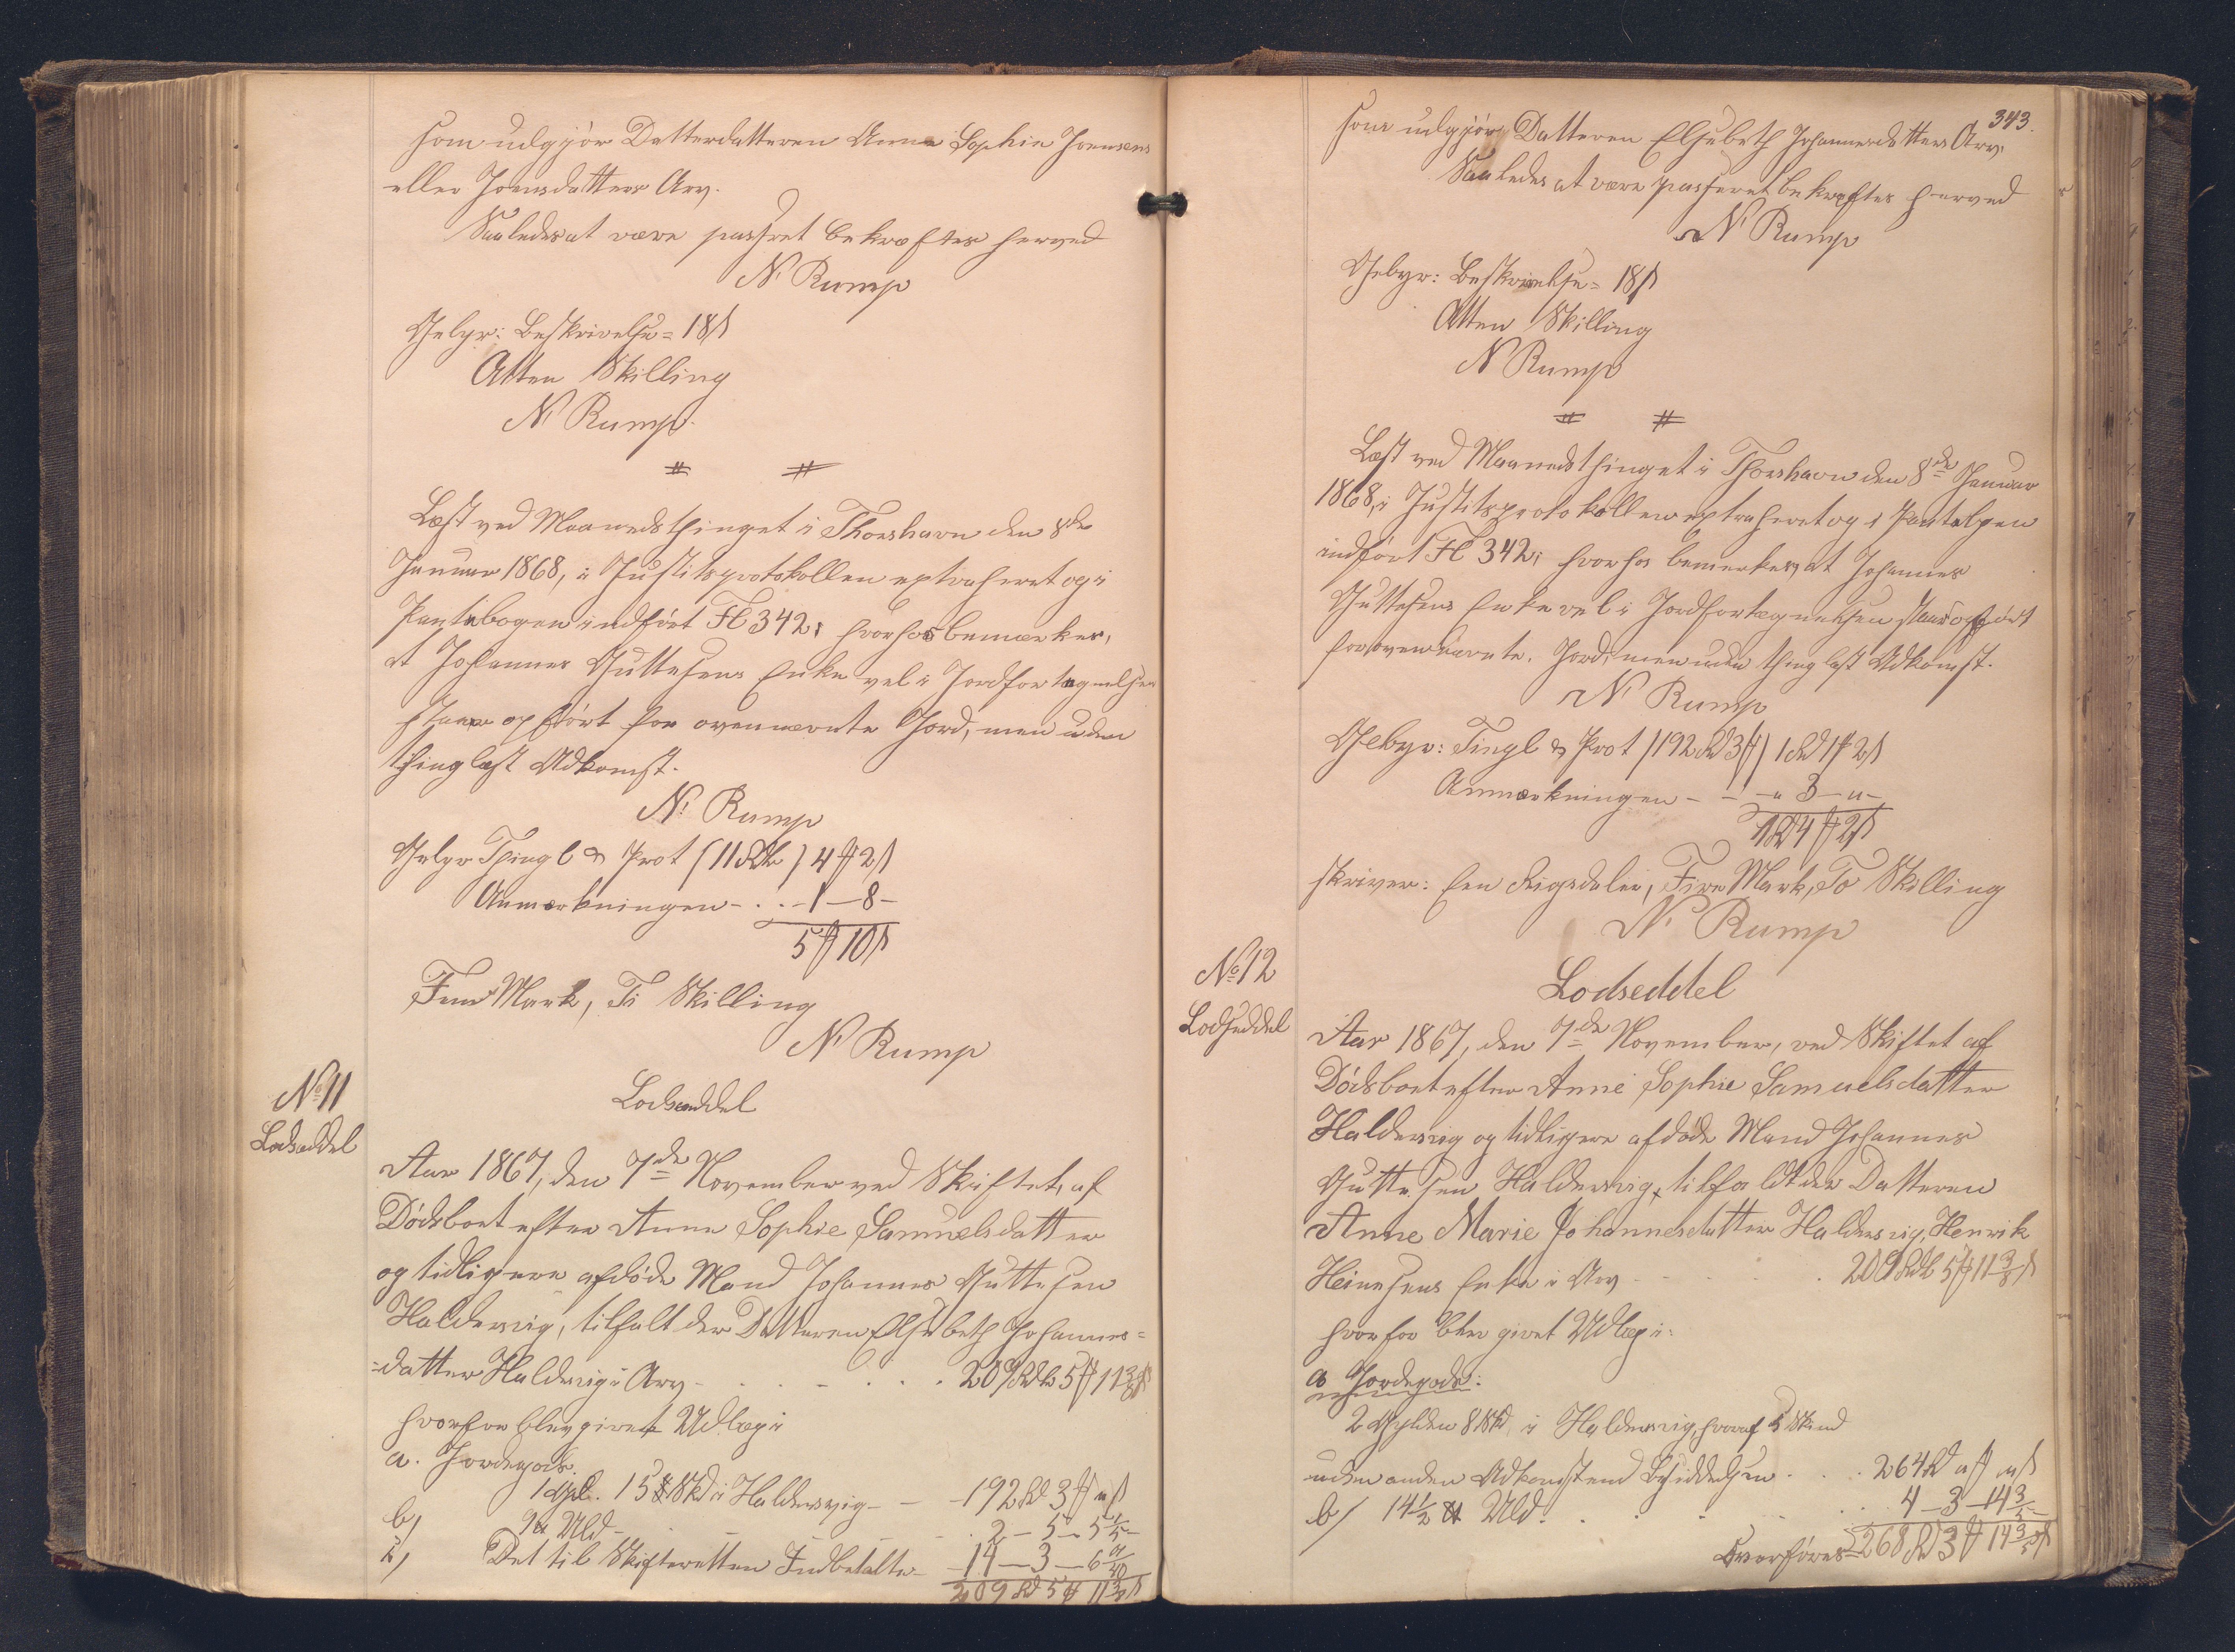 som udgjör Datterdatteren Anna Sophie Joensens
eller Joensdatters Arv.
Saaledes at være passeret bekræftes herved
N. Rump
Gebyr: Beskrivelse = 18 ß
Atten Skilling
N. Rump.
Læst ved Maanedsthinget i Thorshavn den 8de
Januar 1868, i Justitsprotokollen extraheret og i
Pantebogen indført Fl 342, hvorhos bemærkes,
at Johannes Guttesens Enke vel i Jordfortegnelsen
staar opført for ovennævnte Jord, men uden
thinglæst Adkomst.
N. Rump
Gebyr Thingl & Prot (11 Rdl) 4 ₻ 2 ß
Anmærkningen - . . - 1 - 8 -
5 ₻ 10 ß
Fem Mark, Ti Skilling
N. Rump
No 11
Lodseddel
Lodseddel
Aar 1867, den 7de November ved Skiftet, af
Dødsboet efter Anne Sophie Samuelsdatter
og tidligere afdøde Mand Johannes Guttesen
Haldersvig, tilfalt der Datteren Elsebeth Johannes=
=datter Haldersvig i Arv - . . - . . . 209 Rdl 5 ₻ 11 3/8 ß
hvorfor blev givet Udlæg i
a. Jordegods.
1 Gyl. 15 Skd i Haldersvig - - 192 Rd 3 ₻ " ß
b) 9 ℔ Uld - . - . 2 - 5 - 5 1/5 -
c) Det til Skifteretten Indbetalte - 14 - 3 - 6 9/40
209 Rd 5 ₻ 11 3/8 ß
343.
som udgjör Datteren Elsebeth Johannesdatters Arv.
Saaledes at være passeret bekræftes herved
N. Rump
Gebyr: Beskrivelse = 18 ß
Atten Skilling
N. Rump
Læst ved Maanedsthinget i Thorshavn den 8de Januar
1868, i Justitsprotokollen extraheret og i Pantebogen
indført Fl 342, hvorhos bemerkes, at Johannes
Guttesens Enke vel i Jordfortegnelsen staar opført
for ovennævnte Jord, men uden thinglæst Adkomst.
N. Rump
Gebyr: Tingl & Prot (192 Rd 3 ₻) 1 Rd 1 ₻ 2 ß
Anmærkningen - - - " 3 - " -
1 Rd 4 ₻ 2 ß
skriver: Een Rigsdaler, Fire Mark, To Skilling
N. Rump
No 12
Lodseddel
Lodseddel
Aar 1867, den 7de November, ved Skiftet af
Dødsboet efter Anne Sophie Samuelsdatter
Haldersvig og tidligere afdøde Mand Johannes
Guttesen Haldersvig, tilfaldt der Datteren
Anne Marie Johannesdatter Haldersvig, Henrik
Heinesens Enke i Arv - . . . . 209 Rdl 5 ₻ 11 3/8 ß
hvorfor blev givet Udlæg i:
a Jordegods:
2 Gylden 8 Skd i Haldersvig, hvoraf 5 Skind
uden anden Adkomst end Besiddelsen . . . 264 Rd " ₻ " ß
b/ 14 1/2 ℔ Uld. . . . . . 4 - 3 - 14 3/5 -
Overføres 268 Rd 3 ₻ 14 3/5 ß